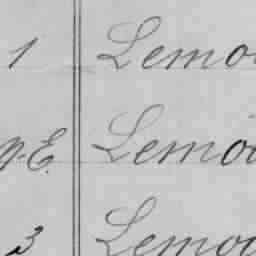 1 Lemo
N.E. Lemoo
3 Lemoo